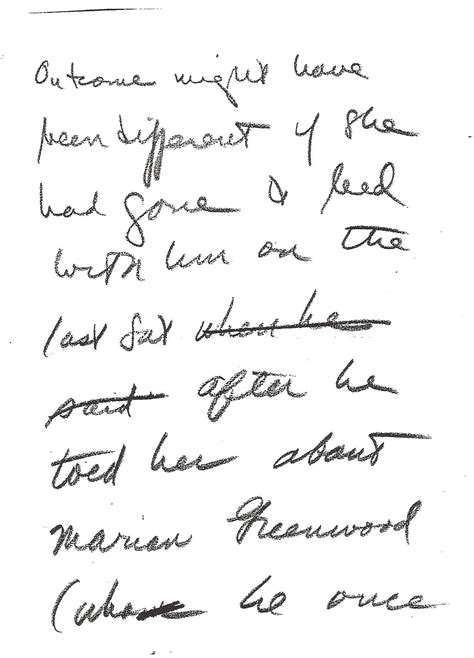 Outcome might have
been different if she
had gone to bed
with him on the
last Sat when he
said after he
told her about
Marian Greenwood
(who he once